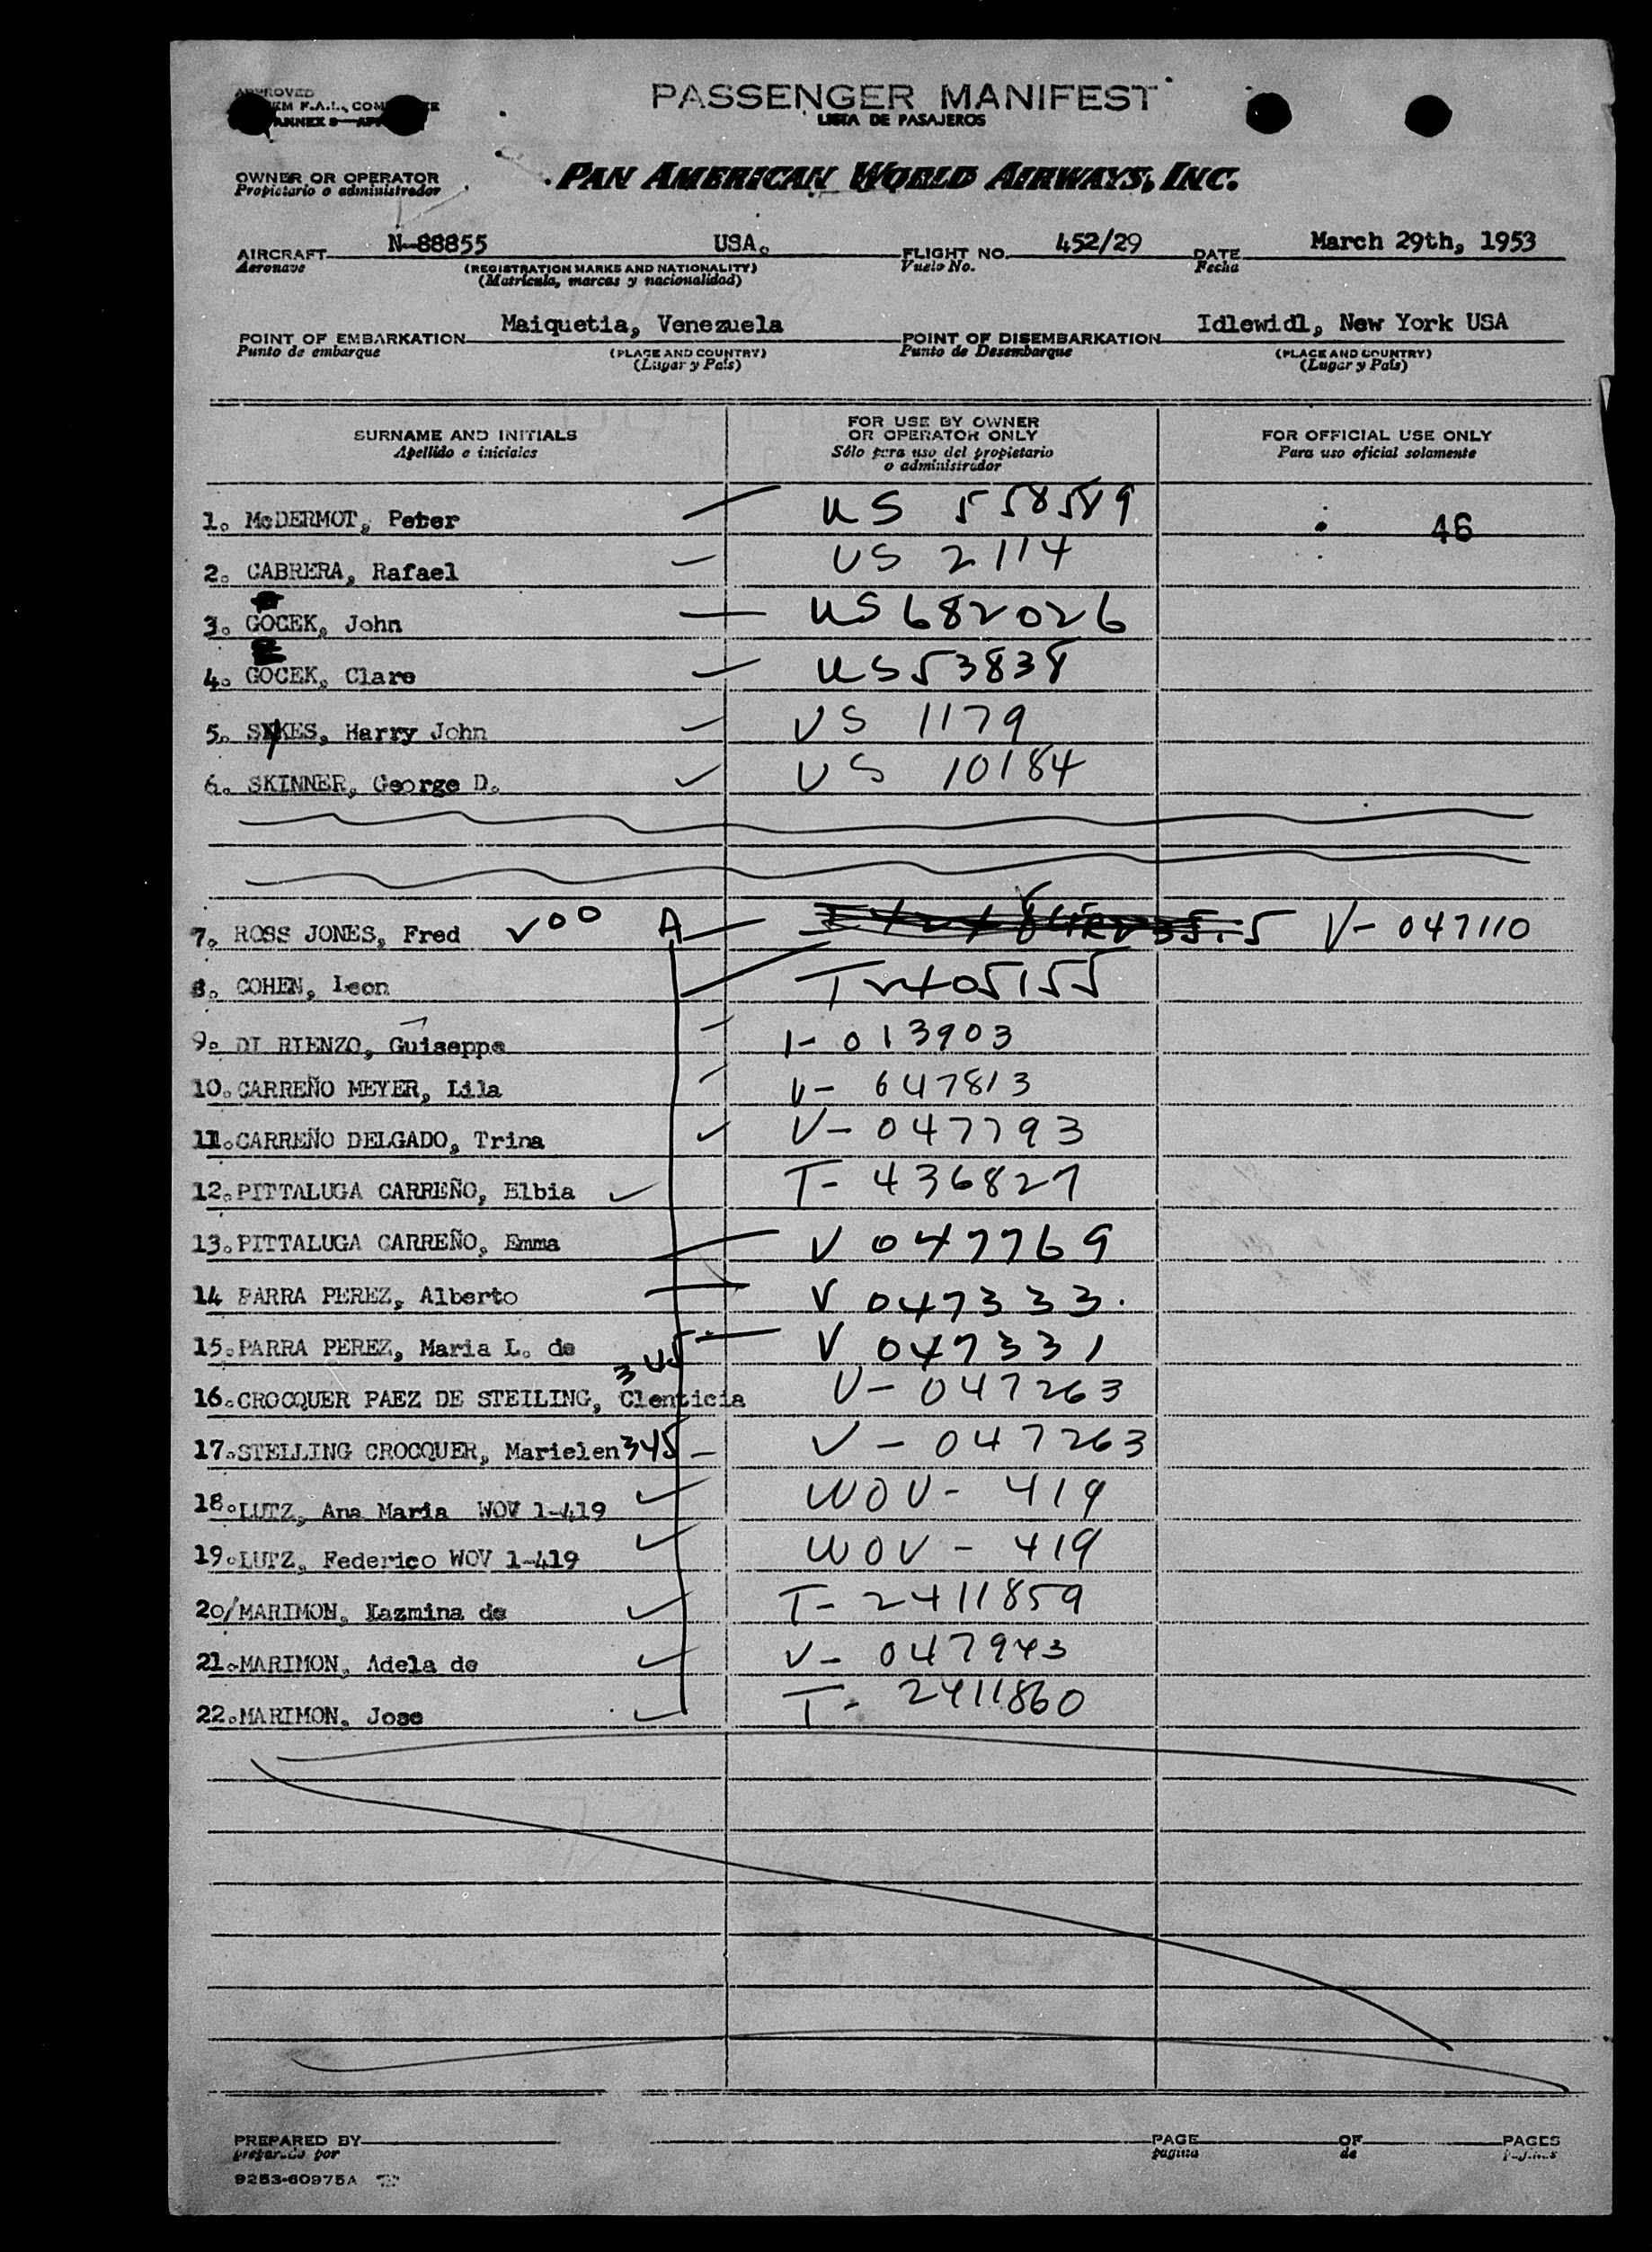 APPROVED
F.A.L. COM
ANNEX 9
PASSENGER MANIFEST
LISTA DE PASAJEROS
OWNER OR OPERATOR
Propietario o administrador
PAN AMERICAN WORLD AIRWAYS, INC.
AIRCRAFT N-88855 USA. FLIGHT NO. 452/29 DATE March 29th, 1953
Aeronave (REGISTRATION MARKS AND NATIONALITY) Vuelo No. Fecha
(Matricula, marcas y nacionalidad)
POINT OF EMBARKATION Maiquetia, Venezuela POINT OF DISEMBARKATION Idlewidl, New York USA
Punto de embarque (PLACE AND COUNTRY) Punto de Desembarque (PLACE AND COUNTRY)
(Lugar y País) (Lugar y País)
SURNAME AND INITIALS FOR USE BY OWNER OR OPERATOR ONLY FOR OFFICIAL USE ONLY
Apellido e iniciales Sólo para uso del propietario o administrador Para uso oficial solamente
1. McDERMOT, Peter US 558589 46
2. CABRERA, Rafael US 2114
3. GOCEK, John US 682026
4. GOCEK, Clare US 53838
5. SYKES, Harry John US 1179
6. SKINNER, George D. US 10184
7. ROSS JONES, Fred A V-047110
8. COHEN, Leon 405155
9. DI RIENZO, Guiseppe 013903
10. CARREÑO MEYER, Lila V- 647813
11. CARREÑO DELGADO, Trina V- 047793
12. PITTALUGA CARREÑO, Elbia T- 436827
13. PITTALUGA CARREÑO, Emma V 047769
14 PARRA PEREZ, Alberto V 047333.
15. PARRA PEREZ, Maria L. de V 047331
16. CROCQUER PAEZ DE STEILING, Clenticia 345 V- 047263
17. STELLING CROCQUER, Marielen 345 V- 047263
18. LUTZ, Ana Maria WOV 1-419 WOV- 419
19. LUTZ, Federico WOV 1-419 WOV - 419
20/MARIMON, Iazmina de T- 2411859
21. MARIMON, Adela de V- 047943
22. MARIMON, Jose T- 2411860
PREPARED BY PAGE OF PAGES
preparado por pagina de paginas
9253-60975A